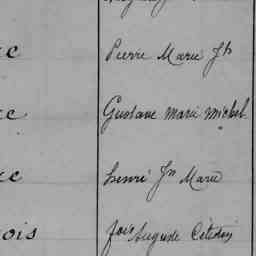 c Pierre Marie Jh
c Gustave Marie Michel
c henri Jn Marie
ois fois Auguste Célestin